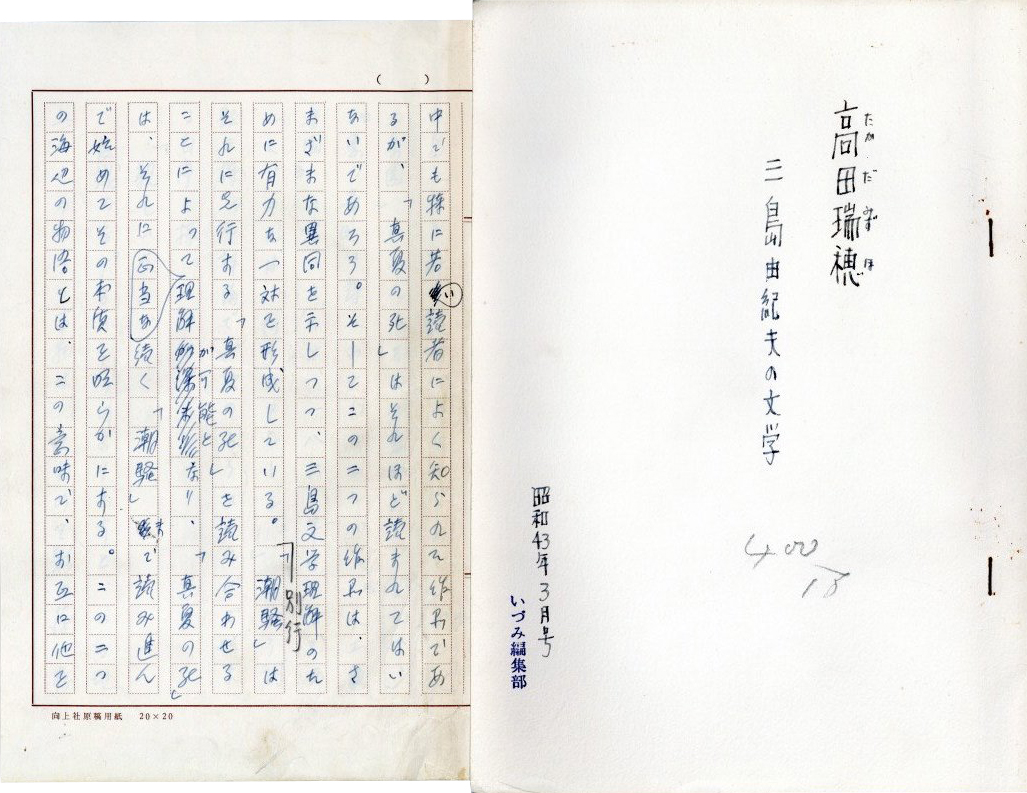 高田瑞穂
たか だ みず ほ
三島由紀夫の文学
400
18
昭和43年3月号
いづみ編集部
( )
中でも特に若い読者によく知られた作品であ
るが、「真夏の死」はそれほど読まれてはい
ないであろう。そしてこの二つの作品は、さ
まざまな異同を示しつつ、三島文学理解のた
別行
めに有力な一対を形成している。「潮騒」は
それに先行する「真夏の死」を読み合わせる
ことによって理解が可能となり、「真夏の死」
は、それに正当な続く「潮騒」まで読み進ん
で始めてその本質を明らかにする。この二つ
の海辺の物語とは、この意味で、お互に他を
向上社原稿用紙 20×20